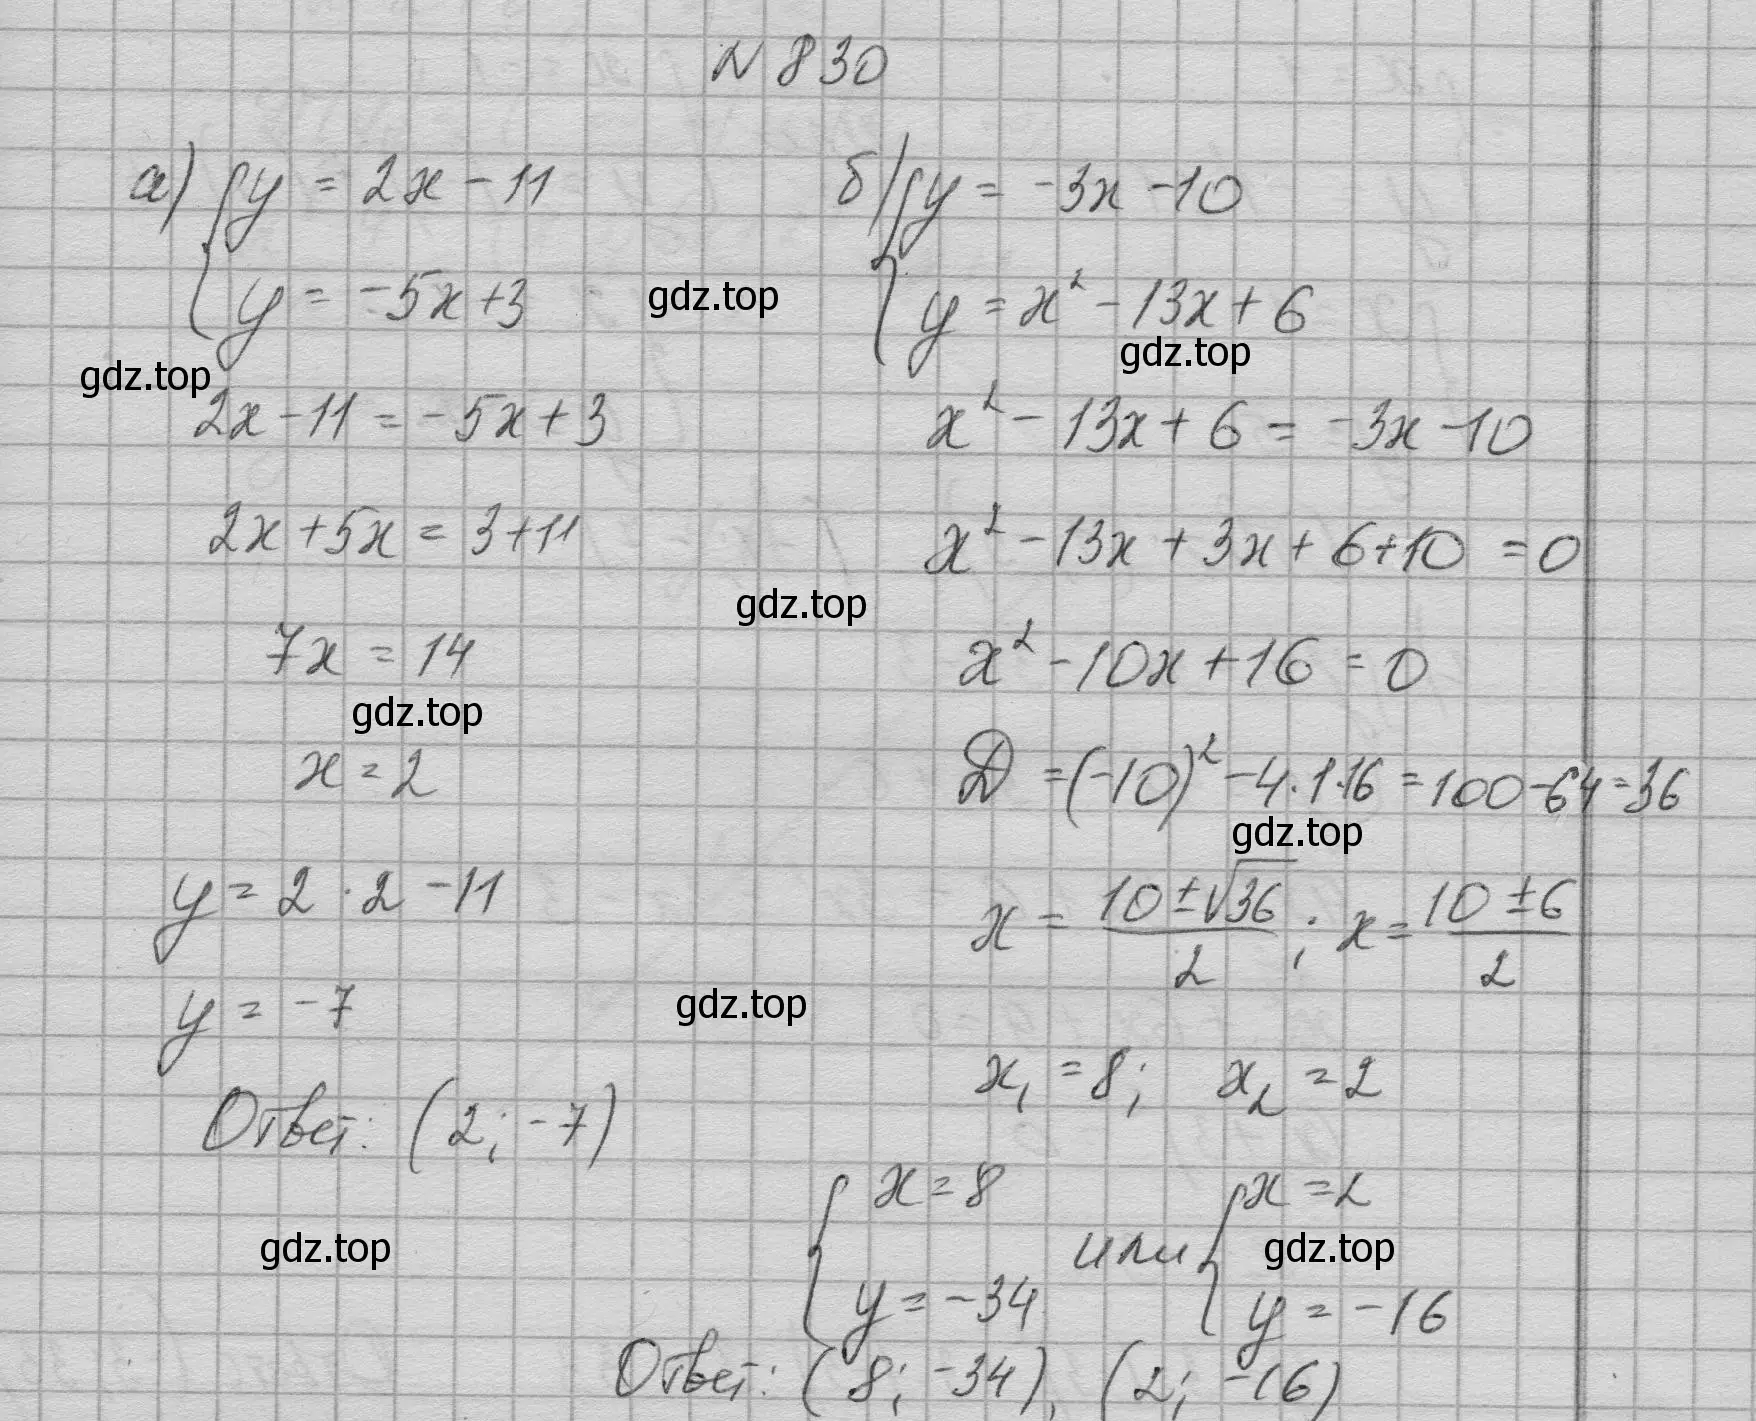 N 830
а) { y = 2x - 11
y = -5x + 3
gdz.top
gdz.top
2x - 11 = -5x + 3
2x + 5x = 3 + 11
7x = 14
gdz.top
x = 2
y = 2 · 2 - 11
y = -7
Ответ: (2; -7)
gdz.top
б) { y = -3x - 10
y = x² - 13x + 6
gdz.top
x² - 13x + 6 = -3x - 10
x² - 13x + 3x + 6 + 10 = 0
gdz.top
x² - 10x + 16 = 0
D = (-10)² - 4 · 1 · 16 = 100 - 64 = 36
gdz.top
x = (10 ± √36) / 2 ; x = (10 ± 6) / 2
gdz.top
x₁ = 8; x₂ = 2
{ x = 8 или { x = 2
gdz.top
y = -34 y = -16
Ответ: (8; -34), (2; -16)